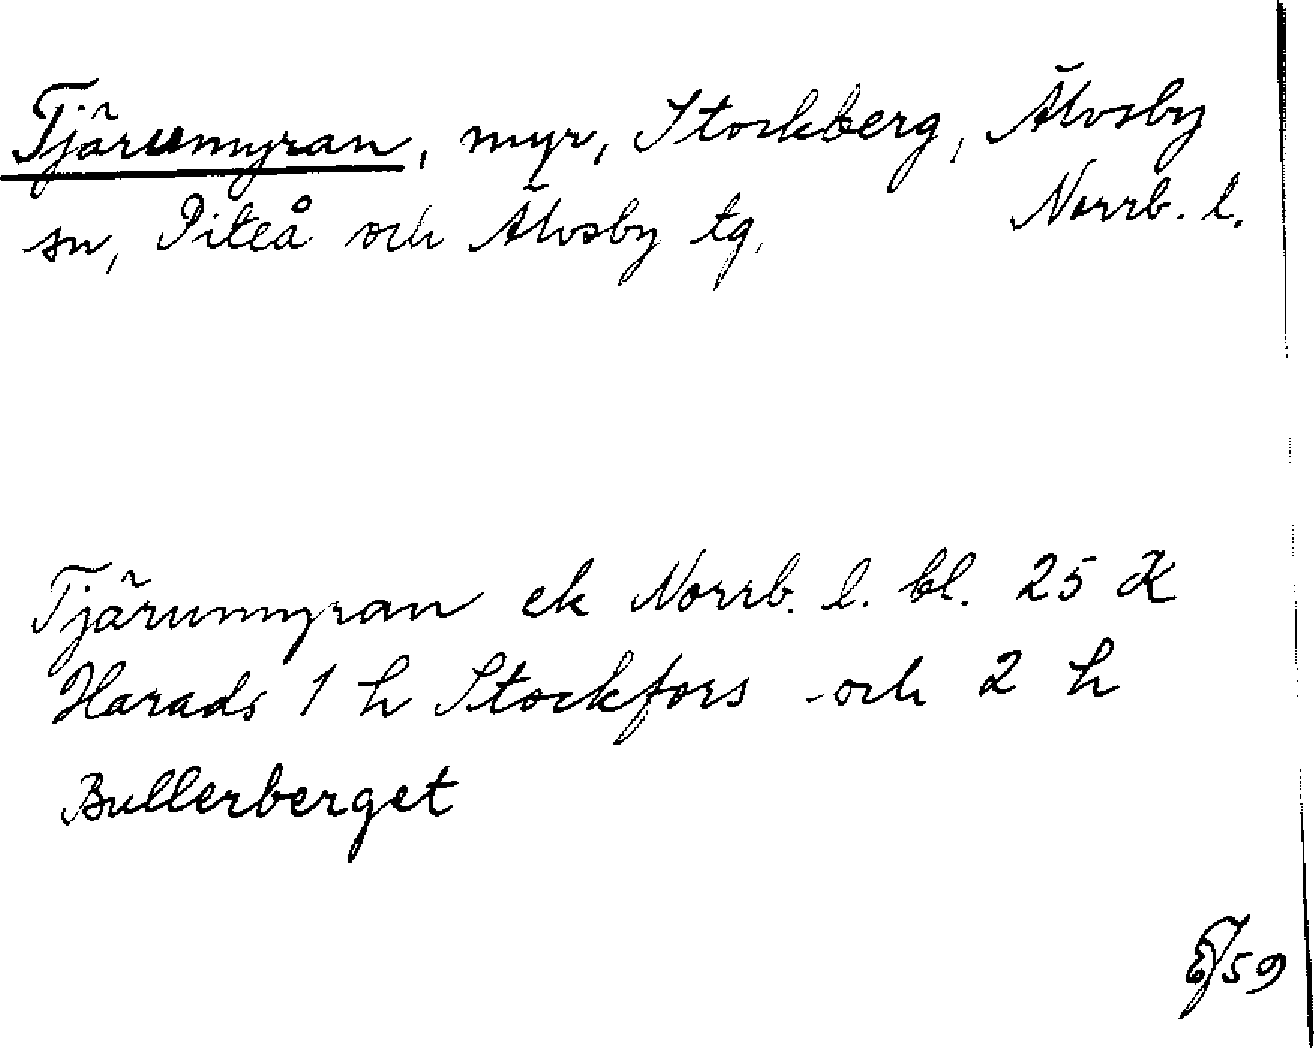 Tjärumyran, myr, Stockberg, Älvsby
sn, Piteå och Älvsby tg, Norrb. l.
Tjärumyran ek Norrb. l. bl. 25 K
Harads 1 h Stockfors och 2 h
Bullerberget
59